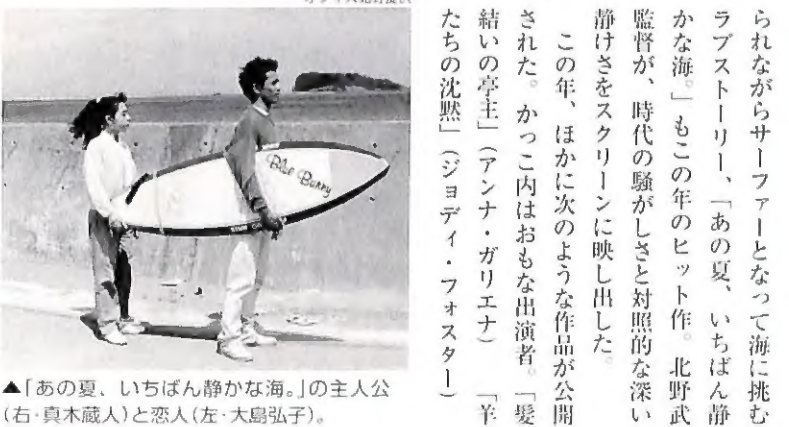 られながらサーファーとなって海に挑む
ラブストーリー、「あの夏、いちばん静
かな海。」もこの年のヒット作。北野武
監督が、時代の騒がしさと対照的な深い
静けさをスクリーンに映し出した。
この年、ほかに次のような作品が公開
された。かっこ内はおもな出演者。「髪
結いの亭主」（アンナ・ガリエナ）　「羊
たちの沈黙」（ジョディ・フォスター）
Blue Bunny
▲「あの夏、いちばん静かな海。」の主人公
（右・真木蔵人）と恋人（左・大島弘子）。